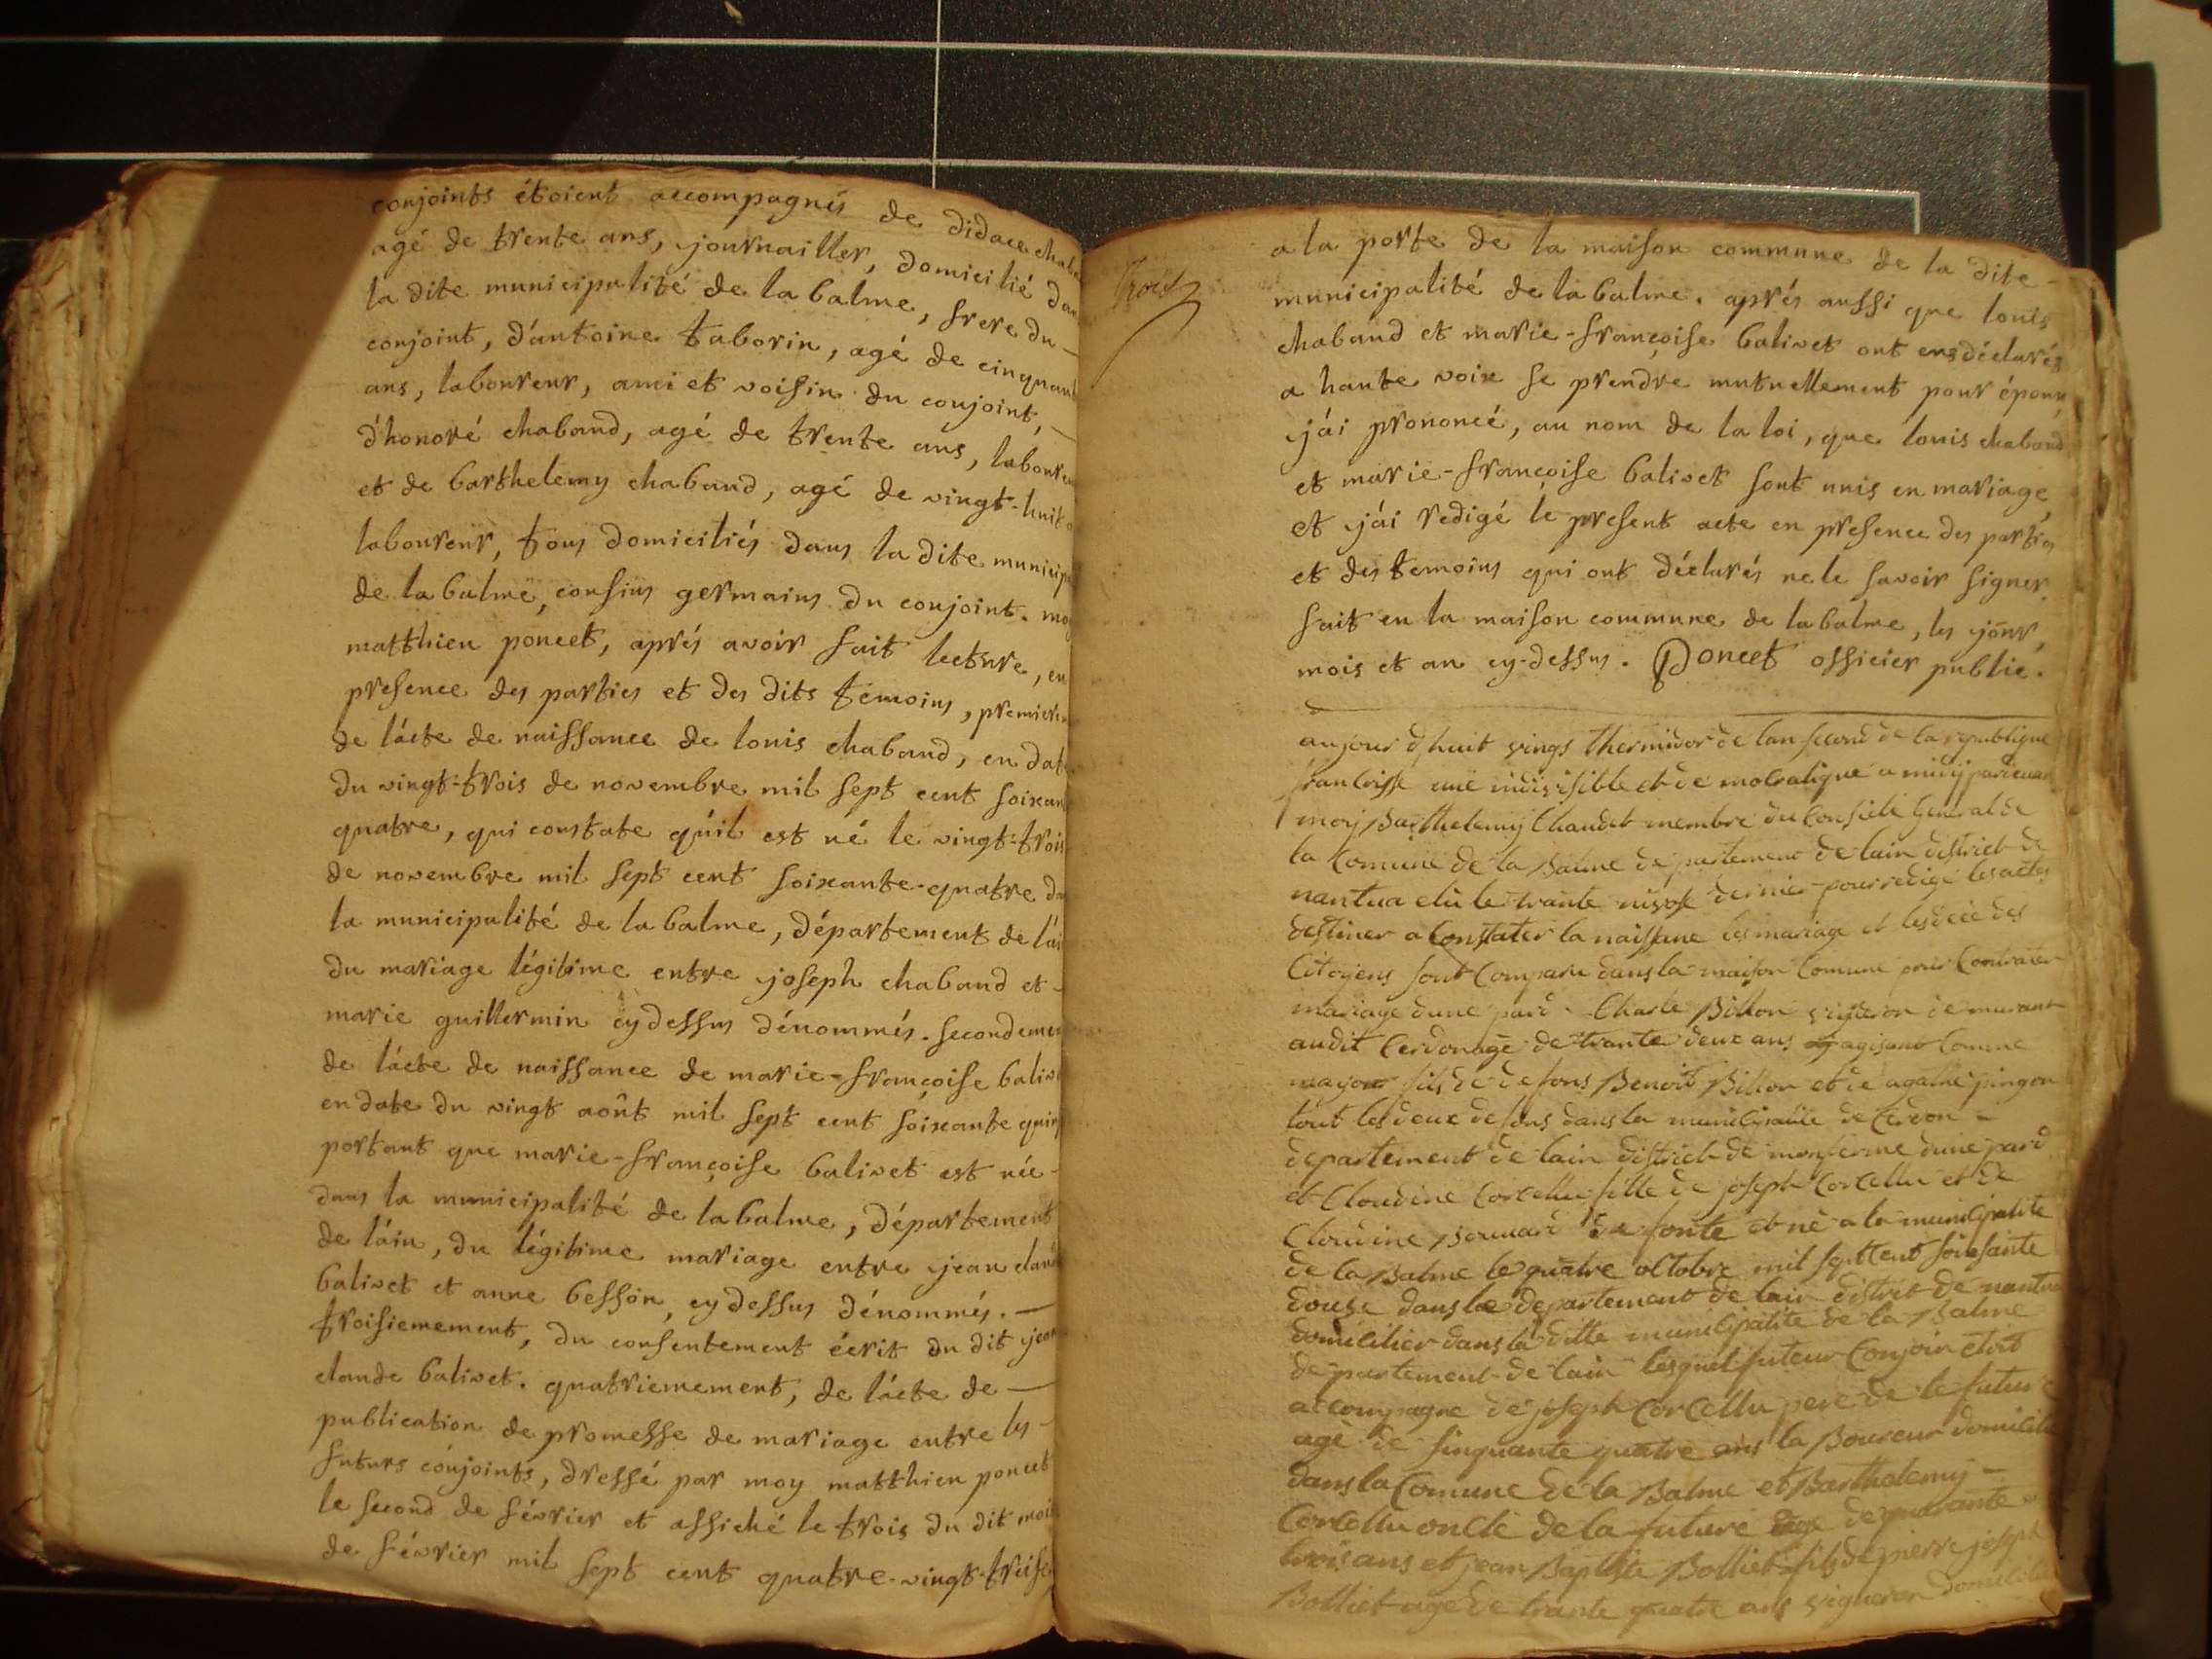 conjoints étoient accompagnés de didace chaba
agé de trente ans, journailler, domicilié dan
la dite municipalité de la balme, frere du —
conjoint, d'antoine taborin, agé de cinquan
ans, laboureur, ami et voisin du conjoint, —
d'honoré chaband, agé de trente ans, laboure
et de barthelemy chaband, agé de vingt-huit
laboureur, tous domiciliés dans la dite municip
de la balme, consins germains du conjoint. moy
matthieu poncet, aprés avoir fait lecture, en
presence des parties et des dits témoins, premierem
de lácte de naissance de louis chaband, en dat
du vingt-trois de novembre mil sept cent soixan
quatre, qui constate qu'il est né le vingt-trois
de novembre mil sept cent soixante-quatre da
la municipalité de la balme, département de láin
du mariage légitime entre joseph chaband et -
marie guillermin cy dessus dénommés. secondemen
de lácte de naissance de marie-françoise balive
en date du vingt août mil sept cent soixante quin
portant que marie-françoise balivet est née -
dans la municipalité de la balme, département
de láin, du légitime mariage entre jean claud
balivet et anne besson, cy dessus dénommés. —
troisiemement, du consentement écrit du dit jean
claude balivet. quatriemement, de lácte de —
publication de promesse de mariage entre les -
futurs conjoints, dressé par moy matthieu poncet
le second de février et affiché le trois du dit mois
de février mil sept cent quatre-vingt-treise,
trois
a la porte de la maison commune de la dite -
municipalité de la balme. aprés aussi que louis
chaband et marie-françoise balivet ont déclarés
a haute voix se prendre mutuellement pour époux,
j'ái prononcé, au nom de la loi, que louis chaband
et marie-françoise balivet sont unis en mariage,
et j'ái redigé le present acte en presence des parties
et des temoins qui ont déclarés ne le savoir signer.
fait en la maison commune de la balme, les jour,
mois et an cy-dessus. Poncet officier public.
aujour d huit vings thermidor de lan second de la republique
francoisse une indivisible et de mocratique a midy
moy Barthelemy Chaudet membre du Conseile General de
la Comune de la Balme departement de lain district de
nantua elü le trante nivose dernier pour redige les actes
destiner a Constater la naissane les mariage et les dece des
Citoyens sont Comparu dans la maison Comune pour Contracter
mariage dune pard Charle Billon vigneron de murant
audit Cerdon age de trante deux ans agisant Comme
mayor fils de defons Benoit Billon et de agathe pingon
tout les deux defons dans la municipalite de Cerdon -
departement de lain district de monferme dune pard
et Cloudine Corcellu fille de joseph Corcellu et de
Cloudine Bernard de fonte et né a la municipalite
de la Balme le quatre octobre mil septcent soissante
douse dans le departement de lain distrit de nantua
domicilier dans la ditte municipalite de la Balme
departement de lain lesquel futeur Conjoin etoit
accompagne de joseph Corcellu pere de le future
age de sinquante quatre ans la Boureur domicilie
dans la Comune de la Balme et Barthelemy -
Corcellu oncle de la future age de quarante -
trois ans et jean Baptiste Bolliet fils de pierre joseph
Bolliet age de trante quatre ans vigneron domicilie